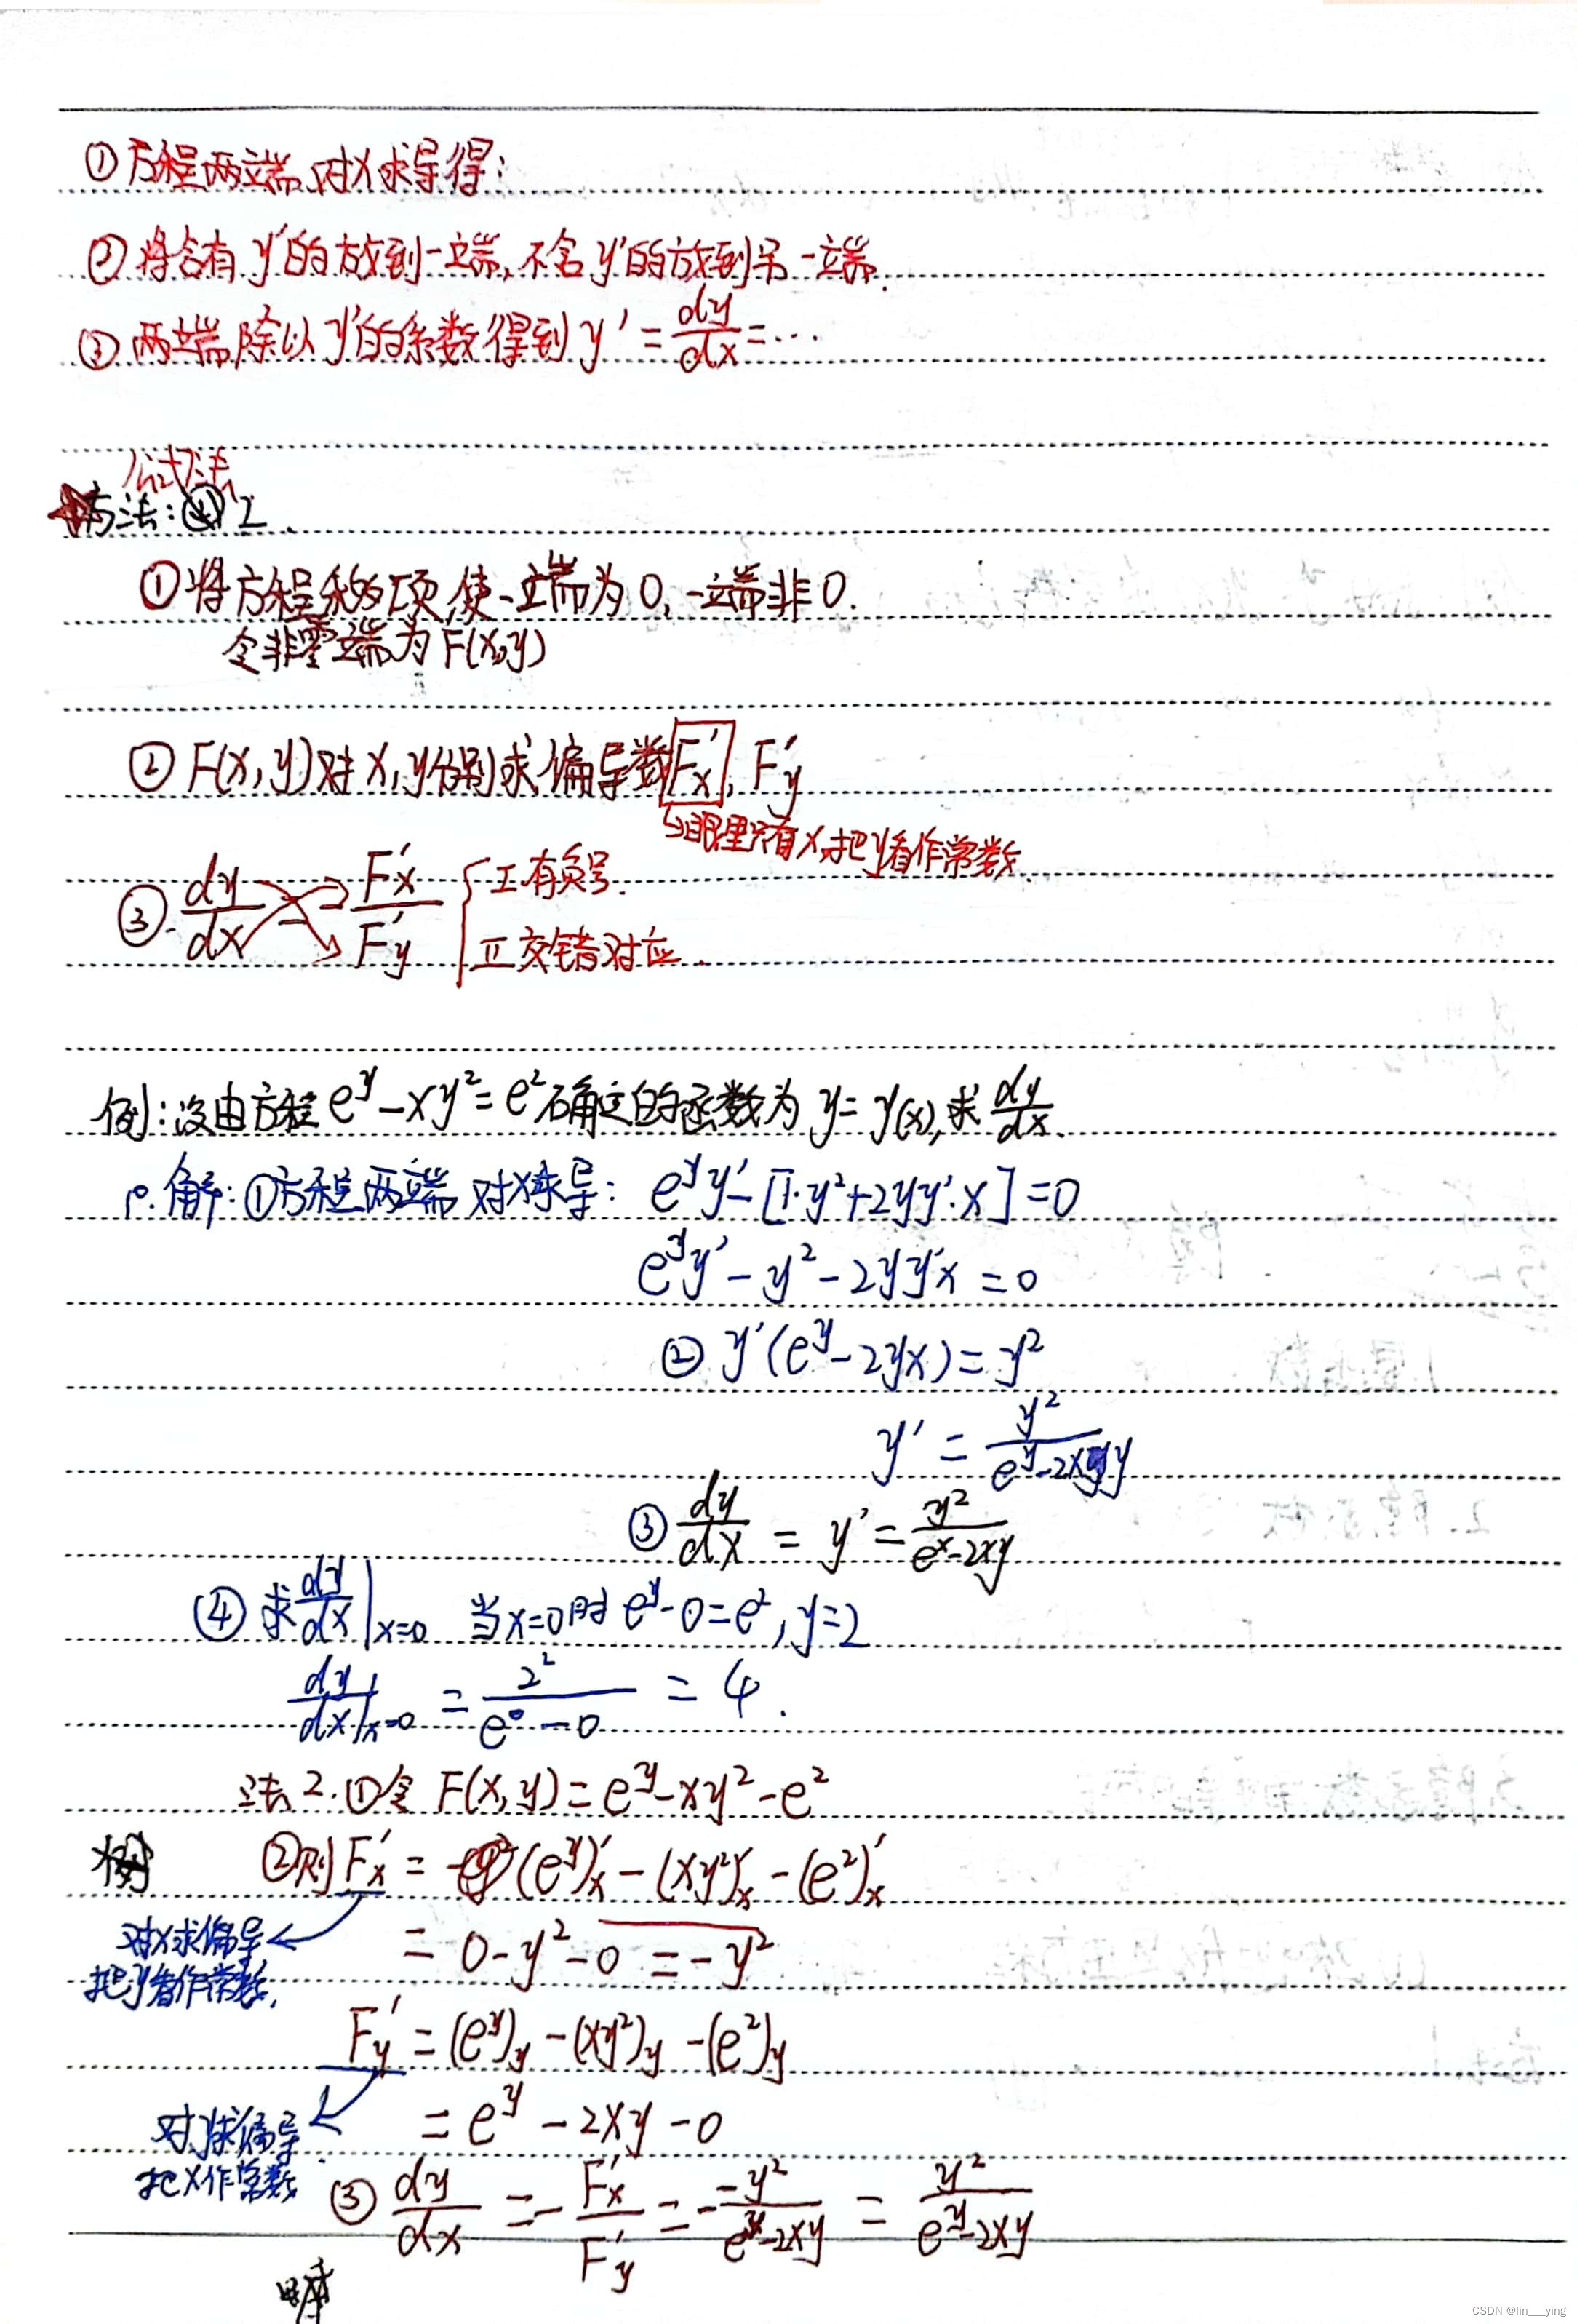 ① 方程两端对x求导得:
② 将含有y'的放到一端,不含y'的放到另一端.
③ 两端除以y'的系数得到 y' = dy/dx = …
公式法
★方法: 2.
① 将方程移项,使一端为0,一端非0.
令非零端为F(x,y)
② F(x,y)对x,y分别求偏导数 F'x , F'y
↳眼里只有x,把y看作常数.
③. dy/dx = - F'x/F'y { I 有负号.
II 交错对应.
例:设由方程 e^y - xy² = e² 确定的函数为 y = y(x),求 dy/dx.
解:①方程两端对x求导: e^y y' - [1·y² + 2yy'·x] = 0
e^y y' - y² - 2yy'x = 0
② y'(e^y - 2yx) = y²
y' = y²/(e^y - 2xy)
③ dy/dx = y' = y²/(e^x - 2xy)
④ 求 dy/dx|x=0 当x=0时 e^y - 0 = e², y=2
dy/dx|x=0 = 2²/(e^0 - 0) = 4.
法2. ①令 F(x,y) = e^y - xy² - e²
②则 F'x = (e^y)'x - (xy²)'x - (e²)'x
对x求偏导 = 0 - y² - 0 = -y²
把y看作常数.
F'y = (e^y)y - (xy²)y - (e²)y
对y求偏导 = e^y - 2xy - 0
把x作常数
③ dy/dx = - F'x/F'y = - -y²/(e^y - 2xy) = y²/(e^y - 2xy)
CSDN @lin___ying